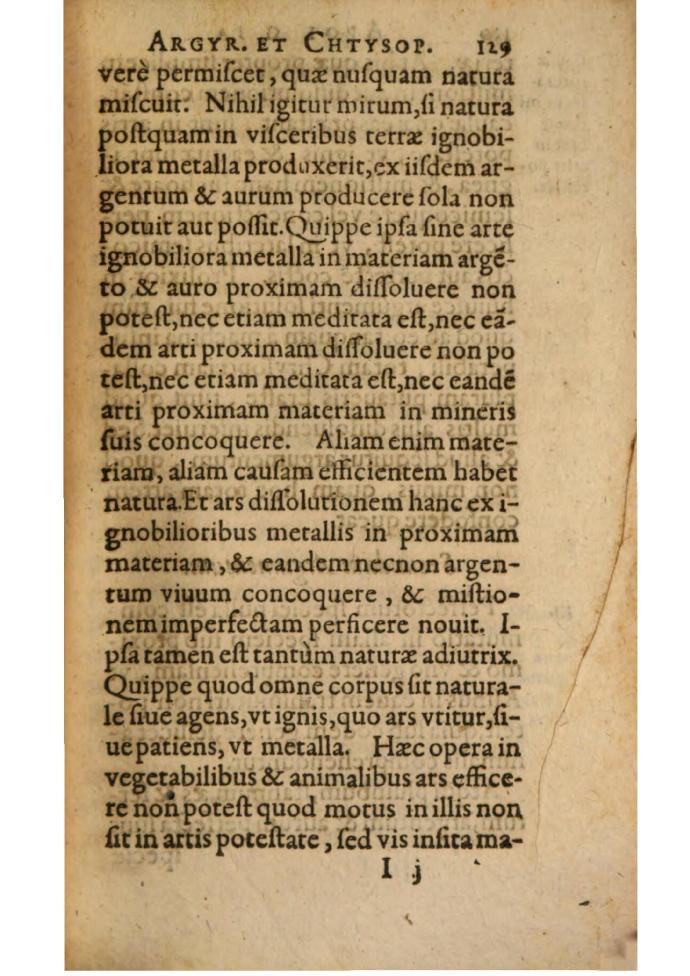 ARGYR. ET CHTYSOP. 129
verè permiſcet, quæ nuſquam natura
miſcuit. Nihil igitur mirum, ſi natura
poſtquam in viſceribus terræ ignobi-
liora metalla produxerit, ex iiſdem ar-
gentum & aurum producere ſola non
potuit aut poſſit. Quippe ipſa ſine arte
ignobiliora metalla in materiam argē-
to & auro proximam diſſoluere non
poteſt, nec etiam meditata eſt, nec eā-
dem arti proximam diſſoluere non po
teſt, nec etiam meditata eſt, nec eandē
arti proximam materiam in mineris
ſuis concoquere. Aliam enim mate-
riam, aliam cauſam efficientem habet
natura. Et ars diſſolutionem hanc ex i-
gnobilioribus metallis in proximam
materiam, & eandem necnon argen-
tum viuum concoquere, & miſtio-
nem imperfectam perficere nouit. I-
pſa tamen eſt tantùm naturæ adiutrix.
Quippe quod omne corpus ſit natura-
le ſiue agens, vt ignis, quo ars vtitur, ſi-
ue patiens, vt metalla. Hæc opera in
vegetabilibus & animalibus ars effice-
re non poteſt quod motus in illis non
ſit in artis poteſtate, ſed vis inſita ma-
I j